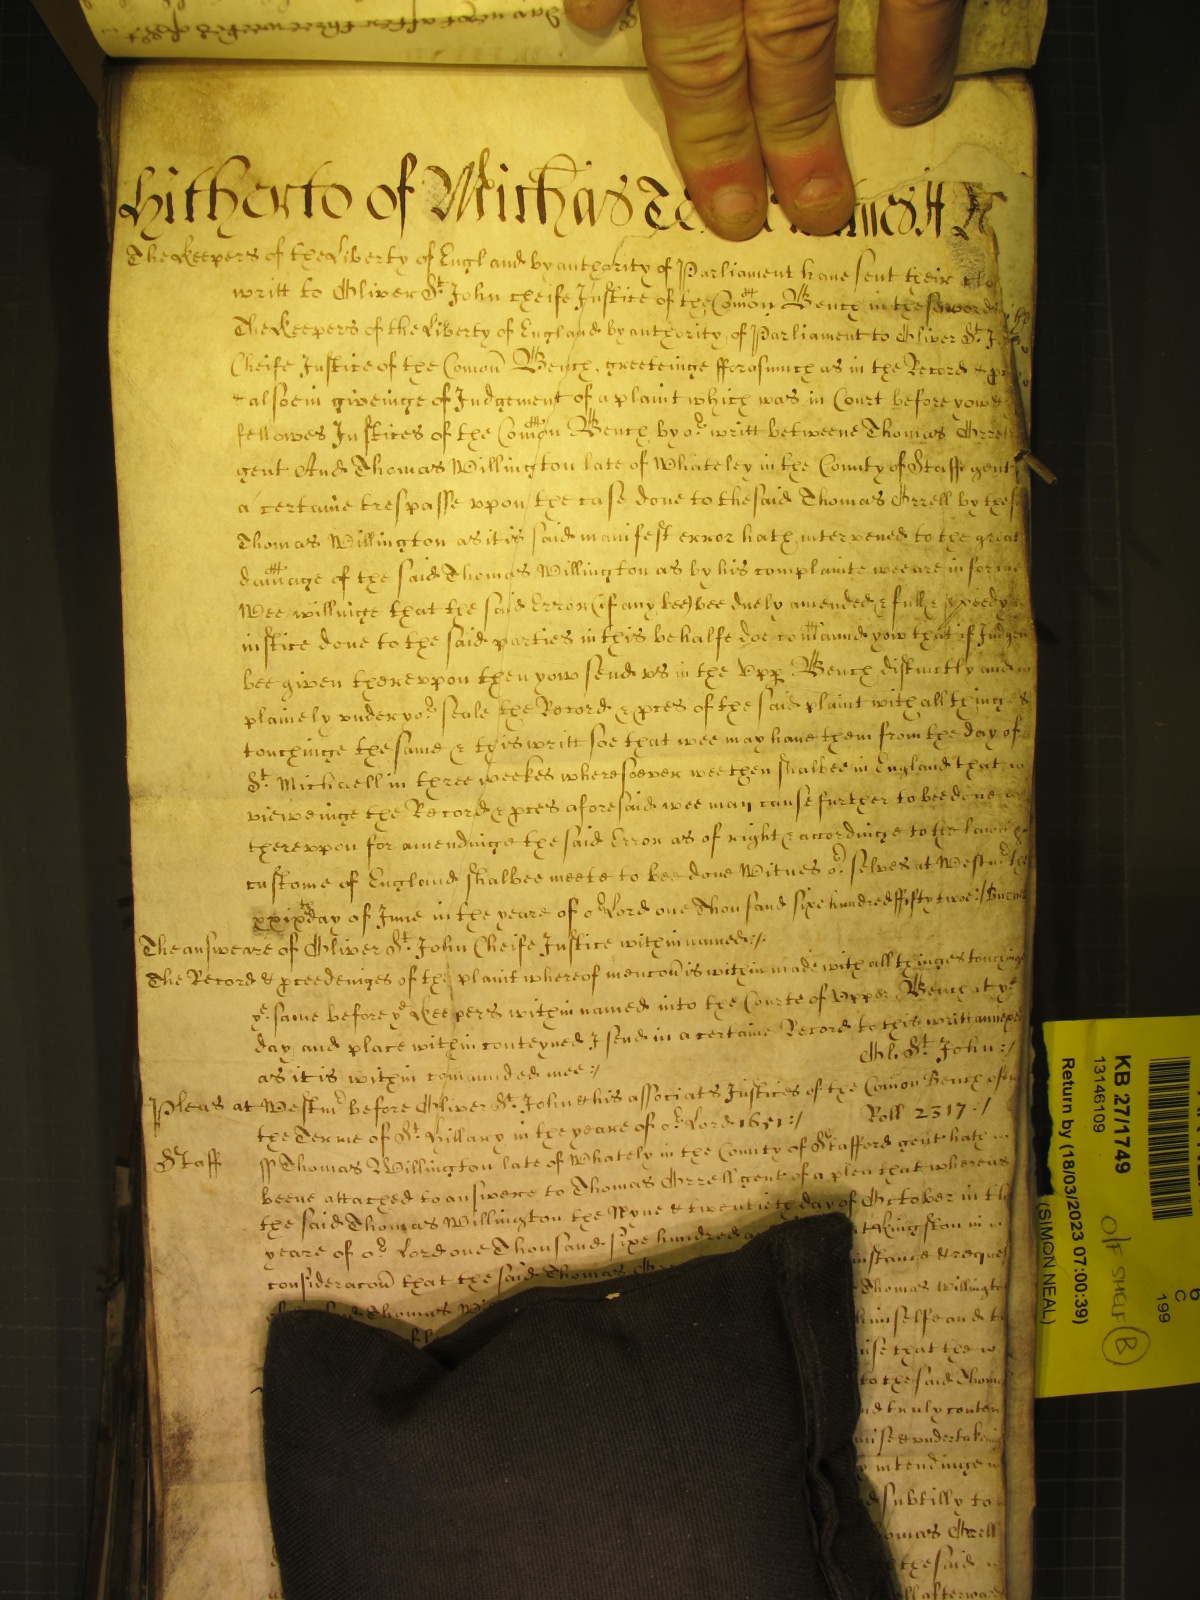 day next after three weekes of St
Hitherto of Michas
The Keepers of the Liberty of England by authority of Parliament have sent their
writt to Oliver St John cheife Justice of the Comon Bench in these words
The Keepers of the Liberty of England by authority of Parliament to Oliver St
Cheife Justice of the Comon Bench, greeteinge fforasmuch as in the Record &
& alsoe in giveinge of Judgement of a plaint which was in Court before yow &
fellowes Justices of the Comon Bench by or writt betweene Thomas Orrell
gent And Thomas Willington late of Whateley in the County of Staff gent
a certaine trespasse vpon the case done to the said Thomas Orrell by the
Thomas Willington as it is said manifest error hath intervened to the great
damage of the said Thomas Willington as by his complainte wee are
Wee willinge that the said Error (if any bee) bee duely amended & full & speedy
iustice done to the said parties in this behalfe doe comaund yow that if
bee given therevpon then yow send vs in the Vpp Bench distinctly and
plainely vnder yor seale the Record & pces of the said plaint with all things
touchinge the same & this writt soe that wee may haue them from the day of
St Michaell in three weekes wheresoever wee then shalbee in England that
vieweinge the Record & pces aforesaid wee may cause further to bee done
therevpon for amendinge the said Error as of right & accordinge to the lawe &
custome of England shalbee meete to bee done Witnes or selves at Westmr the
xxixth day of June in the yeare of or Lord one Thousand sixe hundred ffifty twoe:/
The answeare of Oliver St John Cheife Justice within named:/.
The Record & pceedeinges of the plaint whereof mencon is within made with all thinges touchinge
ye same before ye Keepers within named into the Courte of Vpper Bench at ye
day and place within conteyned I send in a certaine Record to this writt annexed
as it is within comaunded mee:/
Ol. St John:/
Pleas at Westmr before Oliver St John & his associats Justices of the Comon Bench of
the Terme of St Hillary in the yeare of or Lord 1651:/ Roll 2317./
Staff ss Thomas Willington late of Whately in the County of Stafford gent hath
beene attached to answere to Thomas Orrell gent of a plea that whereas
the said Thomas Willington the Nyne & twentieth day of October in the
yeare of or Lord one Thousand sixe hundred at Kingston in
consideracon that the said Thomas instance &
Thomas Willington
himselfe and
that the
to the said
and truly
& vndertakeing
intendinge
subtilly to
Orrell
the said
afterwards
KB 27/1749
13146109
Return by (18/03/2023 07:00:39)
(SIMON NEAL)
O/F SHELF B
6
C
199